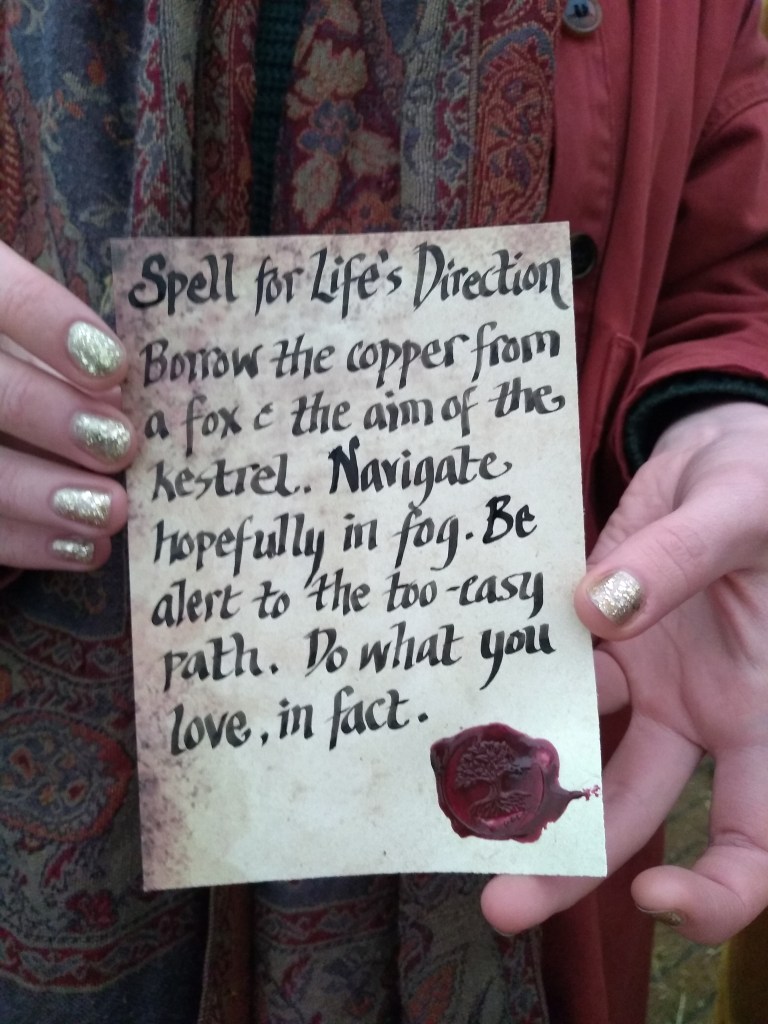 Spell for Life's Direction
Borrow the copper from
a fox & the aim of the
kestrel. Navigate
hopefully in fog. Be
alert to the too-easy
path. Do what you
love, in fact.